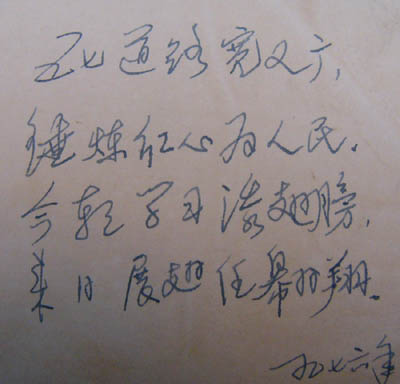 五七道路宽又广,
锤炼红心为人民.
今朝学习添翅膀,
来日展翅任翱翔。
一九七六年